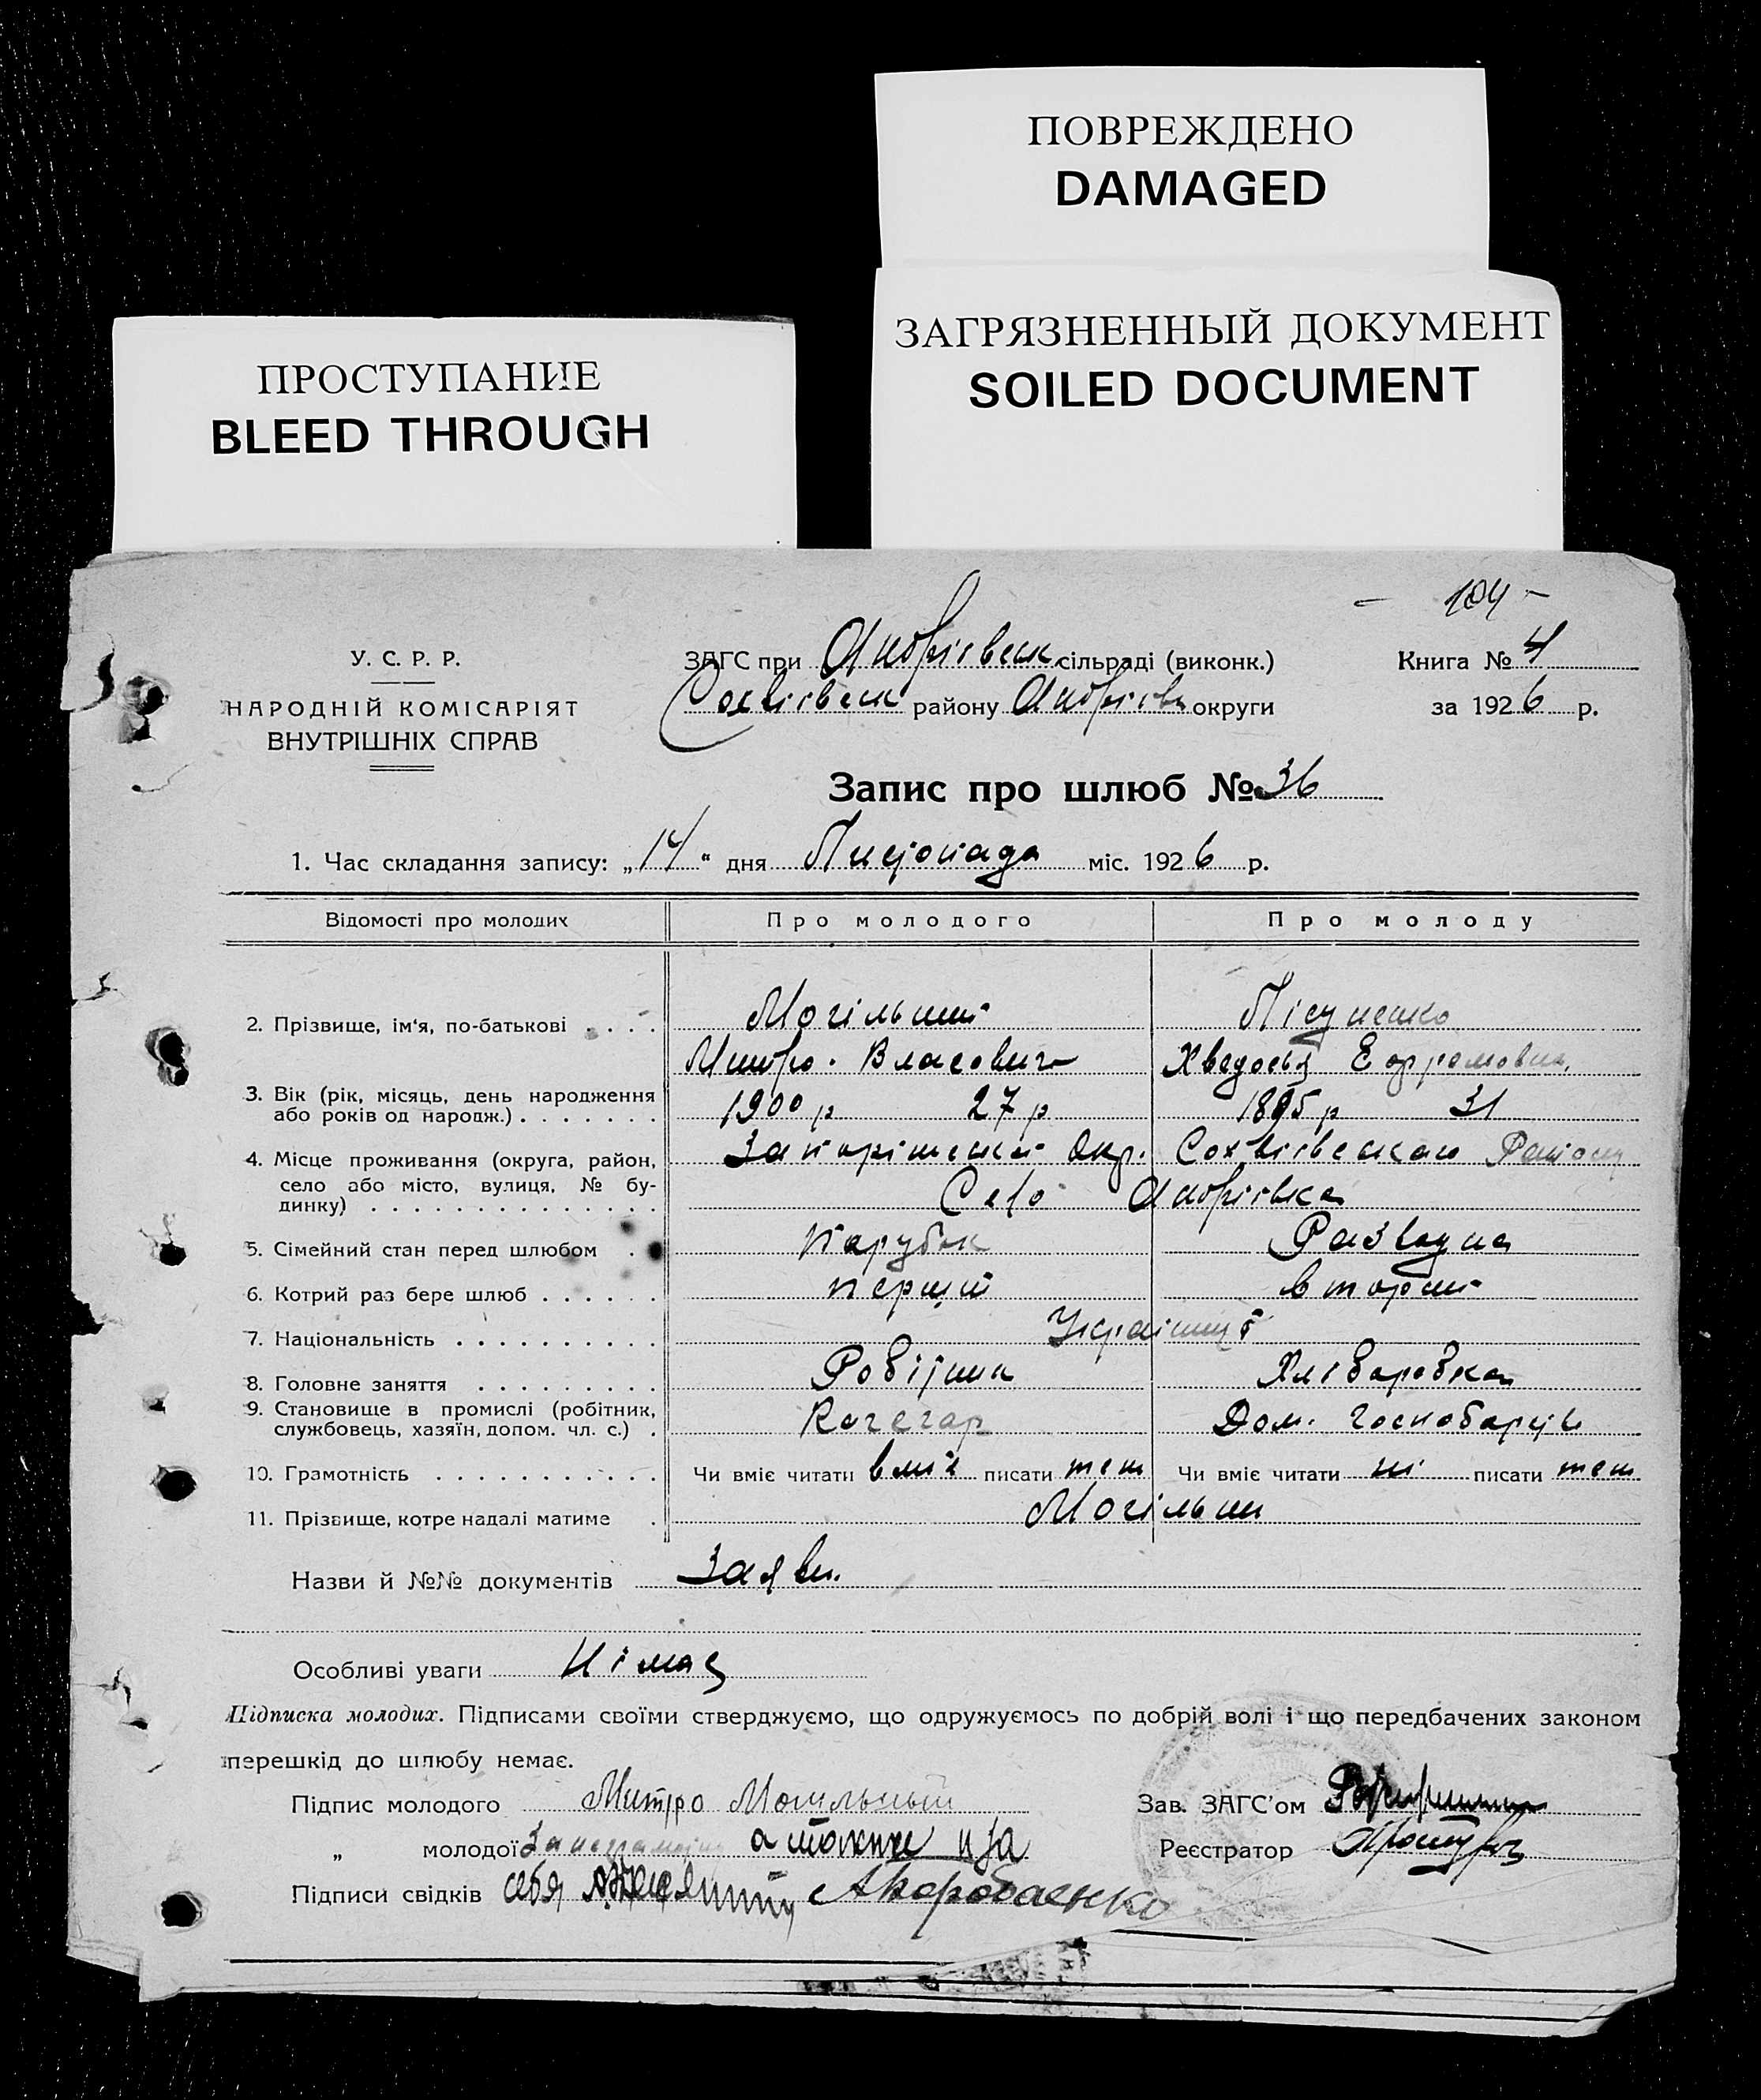 ПОВРЕЖДЕНО
DAMAGED
ЗАГРЯЗНЕННЫЙ ДОКУМЕНТ
SOILED DOCUMENT
ПРОСТУПАНИЕ
BLEED THROUGH
- 104 -
У. С. Р. Р.
НАРОДНІЙ КОМІСАРІЯТ
ВНУТРІШНІХ СПРАВ
ЗАГС при Андріївськ сільраді (виконк.)
району округи
Книга № 4
за 1926 р.
Запис про шлюб № 36
1. Час складання запису: „14“ дня Листопада міс. 1926 р.
Відомості про молодих Про молодого Про молоду
2. Прізвище, ім'я, по-батькові . . . . Могільний Лісуненко
Митро. Власович Хведосья Ефромовна.
3. Вік (рік, місяць, день народження
або років од народж.) . . . . . . . 1900 р 27 р 1895 р 31
4. Місце проживання (округа, район,
село або місто, вулиця, № бу-
динку) . . . . . . . . . . . . . . Запоріжської Окр. Району
Село Андріївка
5. Сімейний стан перед шлюбом . Парубок Разводна
6. Котрий раз бере шлюб . . . . . . перший второй
7. Національність . . . . . . . . . . Українці
8. Головне заняття . . . . . . . . . Робітник Хліборобка
9. Становище в промислі (робітник,
службовець, хазяїн, допом. чл. с.) . Кочегар Дом. господарці
10. Грамотність . . . . . . . . . . . Чи вміє читати вміє писати теж Чи вміє читати ні писати теж
11. Прізвище, котре надалі матиме . Могільни
Назви й №№ документів Заяви.
Особливі уваги Німає
Підписка молодих. Підписами своїми стверджуємо, що одружуємось по добрій волі і що передбачених законом
перешкід до шлюбу немає.
Підпис молодого Митро Могильный
Зав. ЗАГС'ом
„ молодої За неграмотну а также и за
Реєстратор
Підписи свідків себя